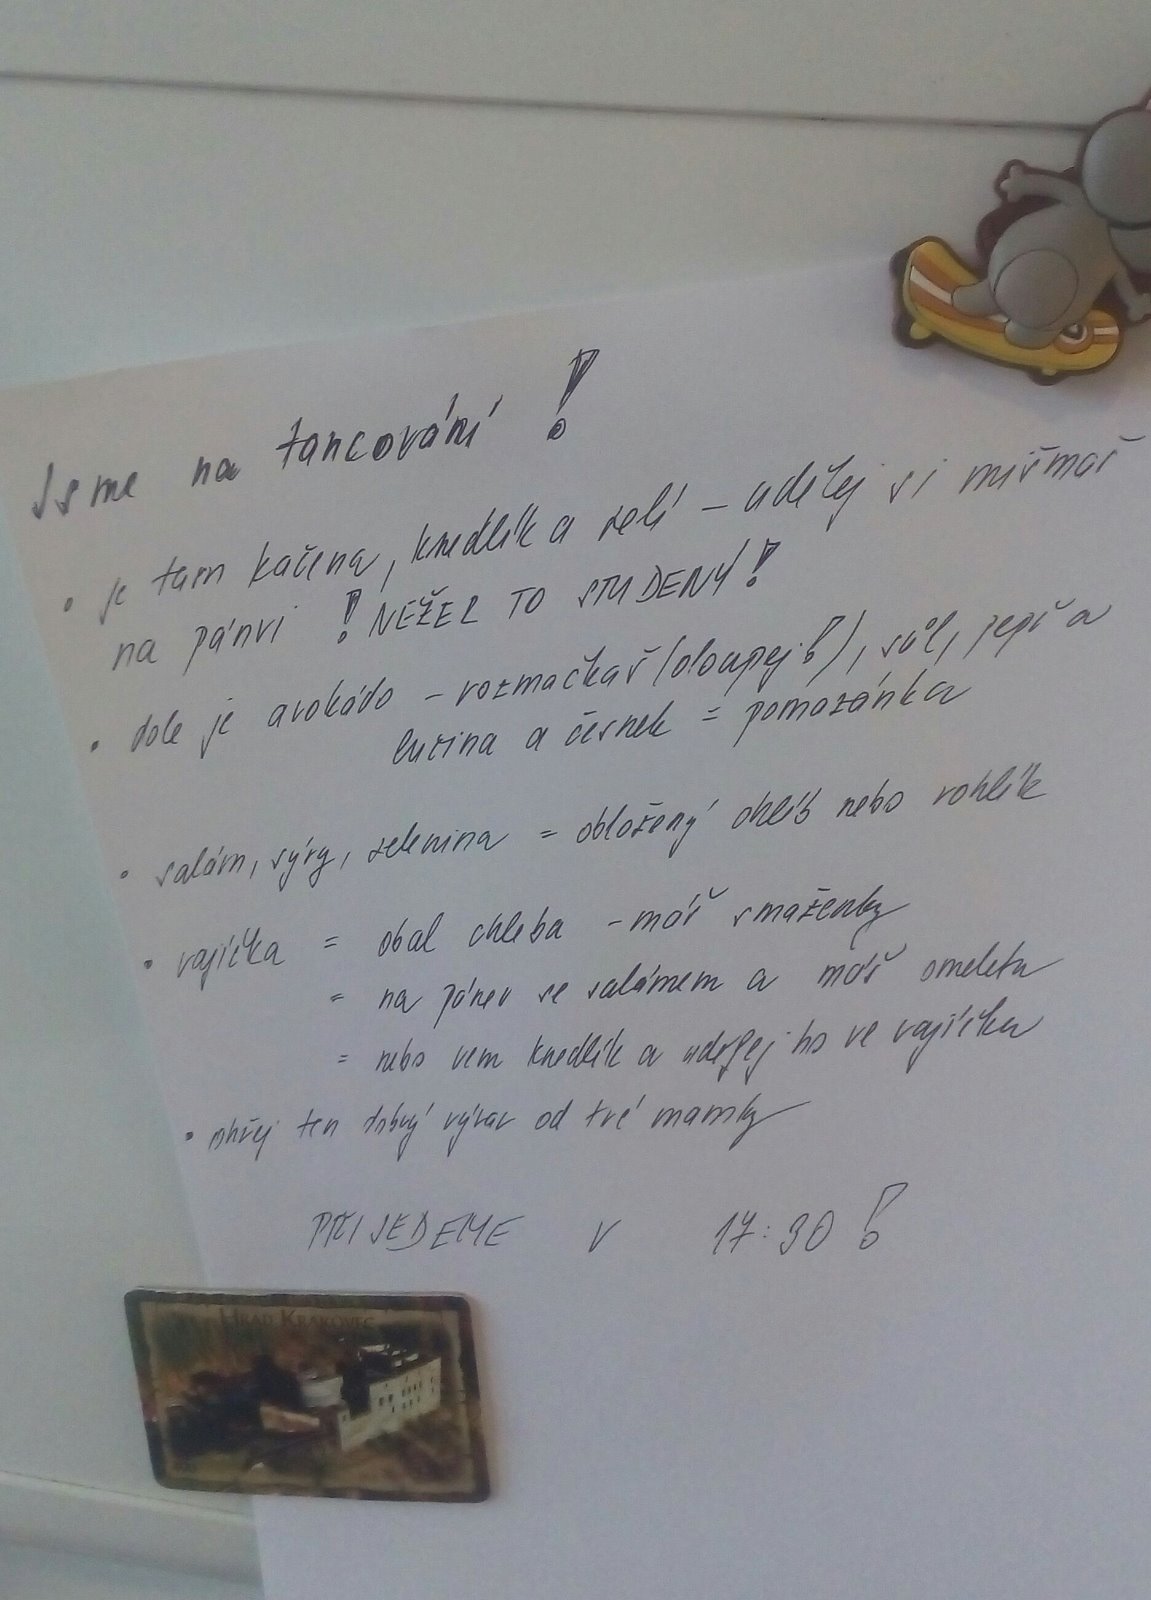 Jsme na tancování!
• je tam kačena, knedlík a zelí – udělej si mišmaš
na pánvi! NEŽER TO STUDENÝ!
• dole je avokádo – rozmačkař (oloupej!), sůl, pepř a
lučina a česnek = pomazánka
• salám, sýry, zelenina = obložený chlíb nebo rohlík
• vajíčka = obal chleba – máš smaženky
= na pánev se salámem a máš omeletu
= nebo vem knedlík a udělej ho ve vajíčku
• ohřej ten dobrý vývar od tvé mamky
PŘIJEDEME V 17:30!
HRAD KRAKOVEC